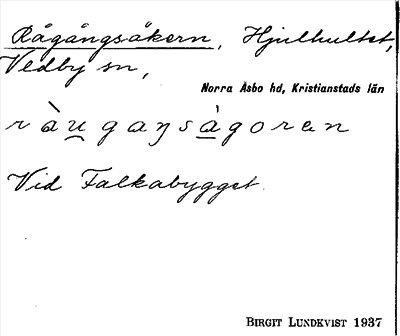 Rågångsåkern, Hjulhultet,
Vedby sn,
Norra Åsbo hd, Kristianstads län
ràu̯gaŋsàgoren
Vid Falkabygget.
BIRGIT LUNDKVIST 1937